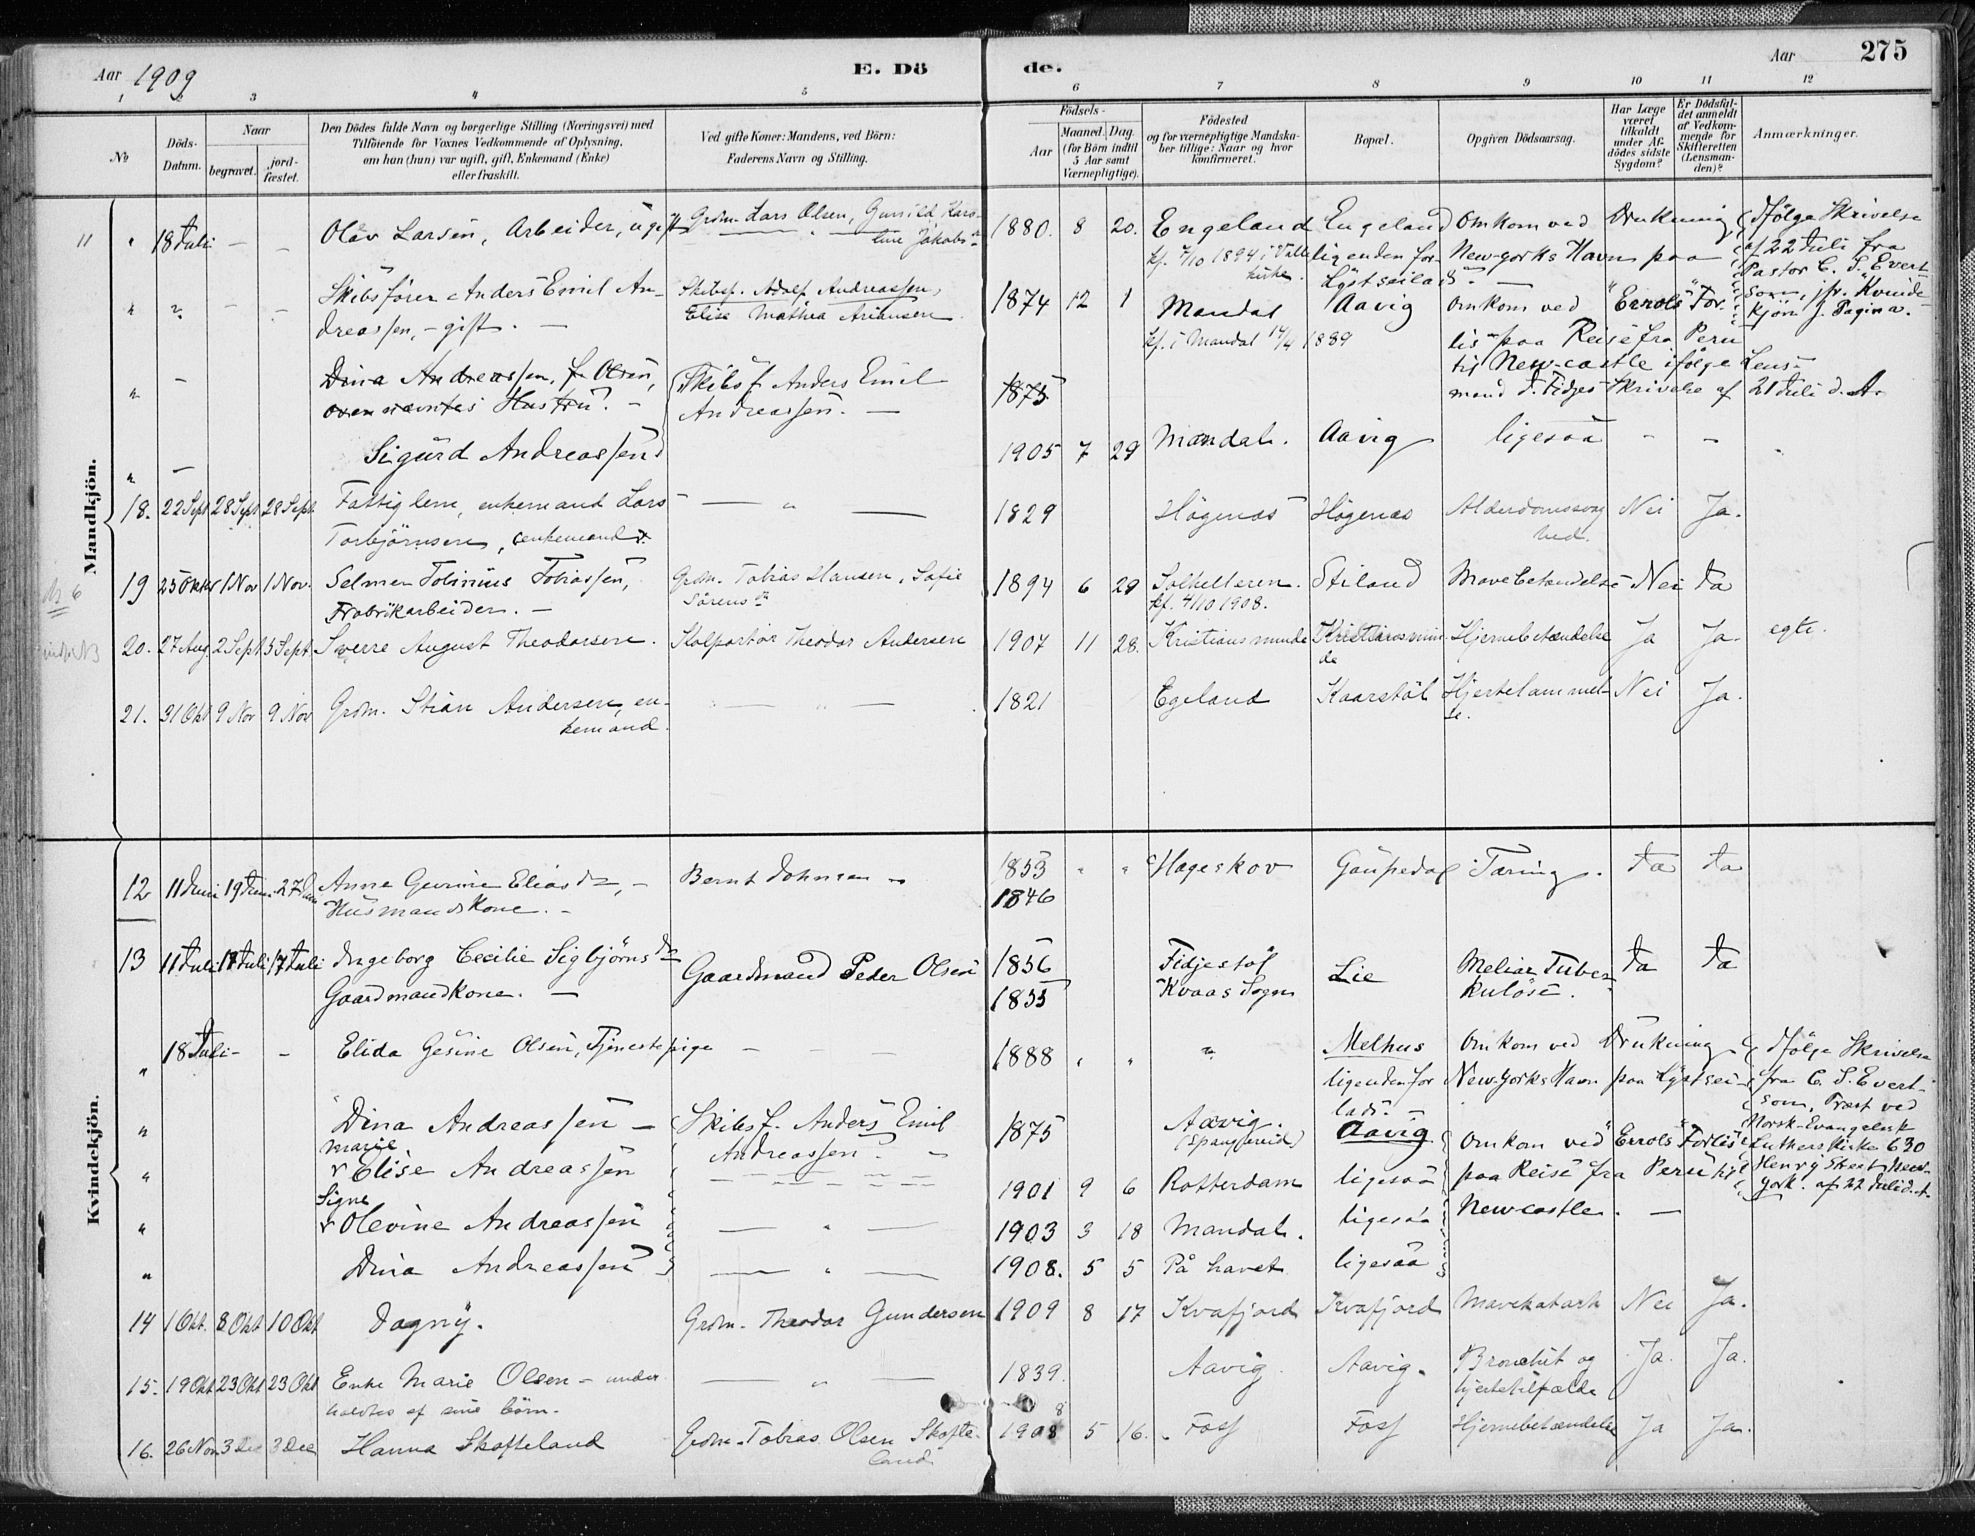 Aar 1909
E. Dö
de.
Aar
275
1 2 3 4 5 6 7 8 9 10 11 12
№
Döds-
Datum.
Naar
begravet.
jord-
fæstet.
Den Dödes fulde Navn og borgerlige Stilling (Næringsvei) med
Tilföiende for Voxnes Vedkommende af Oplysning,
om han (hun) var ugift, gift, Enkemand (Enke)
eller fraskilt.
Ved gifte Koner: Mandens, ved Börn:
Faderens Navn og Stilling.
Födsels-
Aar
Maaned. Dag.
(for Börn indtil
5 Aar samt
Værnepligtige).
Födested
og for værnepligtige Mandska-
ber tillige: Naar og hvor
konfirmeret.
Bopæl.
Opgiven Dödsaarsag.
Har Læge
været
tilkaldt
under Af-
dödes sidste
Sygdom?
Er Dödsfal-
det anmeldt
af Vedkom-
mende for
Skifteretten
(Lensman-
den)?
Anmærkninger.
Mandkjön.
11
" 18 Juli - - Olav Larsen, Arbeider, ugift Grdm. Lars Olsen, Gunild Karo-
line Jakobsd. 1880. 8 20. Engeland Engeland Omkom ved Drukning Ifølge Skrivelse
kf. 7/10 1894 i Valle ligenden for New-yorks Havn paa af 22 Juli fra
kirke. Lystseilads. - Pastor C. S. Evert-
son, jfr. Kvinde-
kjön f. Pagina.
" ? - - Skibsfører Anders Emil An-
dreassen, - gift. - Skibsf. Adolf Andreassen,
Elise Mathea Ariansen. 1874 12 1 Mandal Aavig omkom ved "Errols" For-
kf. i Mandal 14/4 1889 lis paa Reise fra Peru
til New-castle ifølge Lens-
mand J. Fidjes Skrivelse af 21 Juli d. A.
" - Dina Andreassen, f. Olsen,
ovennævntes Hustru. - Skibsf. Anders Emil
Andreassen. - 1875
" - Sigurd Andreassen 1905 7 29 Mandal. Aavig ligesaa - -
18. 22 Sept 28 Sept 28 Sept. Fattiglem, enkemand Lars
Torbjørnsen, enkemand. - " - 1829 Høgenes Høgenes Alderdomssvag
hed. Nei Ja.
19 25 Oktbr 1 Nov 1 Nov. Selmer Tobinius Tobiassen,
Frabrikarbeider. - Grdm. Tobias Hansen, Sofie
Sörensd. 1894 6 29 Solhelleren.
kf. 4/10 1908. Stiland Mavebetændelse Nei Ja
20. 27 Aug. 2 Sept 5 Sept. Sverre August Theodorsen. Kolportør Theodor Andersen 1907 11 28. Kristiansminde Kristiansmin-
de Hjernebetændelse Ja Ja. egte.
21. 31 Okt 9 Nov 9 Nov Grdm. Stian Andersen, en-
kemand. - " - 1821 Egeland Kaarstöl Hjertelammel-
se. Nei Ja.
Kvindekjön.
12 11 Juni 19 Juni 27 Juni Anne Gurine Eliasd., -
Husmandskone. - Bernt Johnsen 1853 " " Hageskov Gaupedal Tæring. Ja Ja
1846
13 11 Juli 17 Juli 17 Juli Ingeborg Cecilie Sigbjörnsd.
Gaardmandkone. - Gaardmand Peder Olsen 1856 Fidjestøl Lie Meliær Tuber-
1855 Kvaas Sogn kulöse. Ja Ja
" 18 Juli - - Elida Gesine Olsen, Tjenestepige - - 1888 " " ? Melhus Omkom ved Drukning Ifølge Skrivelse
ligenden for New-Yorks Havn paa Lystsei- fra C. S. Evert-
lads. - son, Præst ved
Norsk-Evangelisk
Luthers Kirke 630
Henry Street, New-
york. af 22 Juli d. A.
" Dina Andreassen - Skibsf. Anders Emil
Andreassen. - 1875 Aavig.
(Spangereid) Aavig Omkom ved "Errols" Forlis
" Marie
Elise Andreassen 1901 9 6 Rotterdam ligesaa paa Reise fra Peru til
" Signe
Olevine Andreassen - " - 1903 3 18 Mandal. ligesaa Newcastle. -
" Dina Andreassen - " - 1908. 5 5 På havet ligesaa
14 1 Okt. 8 Okt 10 Okt Dagny. Grdm. Theodor Gundersen 1909 8 17 Kvafjord Kvafjord Mavekatarh Nei Ja.
15. 19 Okt 23 Okt 23 Okt Enke Marie Olsen - under-
holdtes af sine børn. - " - 1839. Aavig Aavig. Bronchit og
hjertetilfælde Ja. Ja.
16. 26 Nov 3 Dec 3 Dec Hanna Skofteland Grdm. Tobias Olsen Skofte-
land 1908 5 16. Foss Foss Hjernebetændelse Ja Ja.